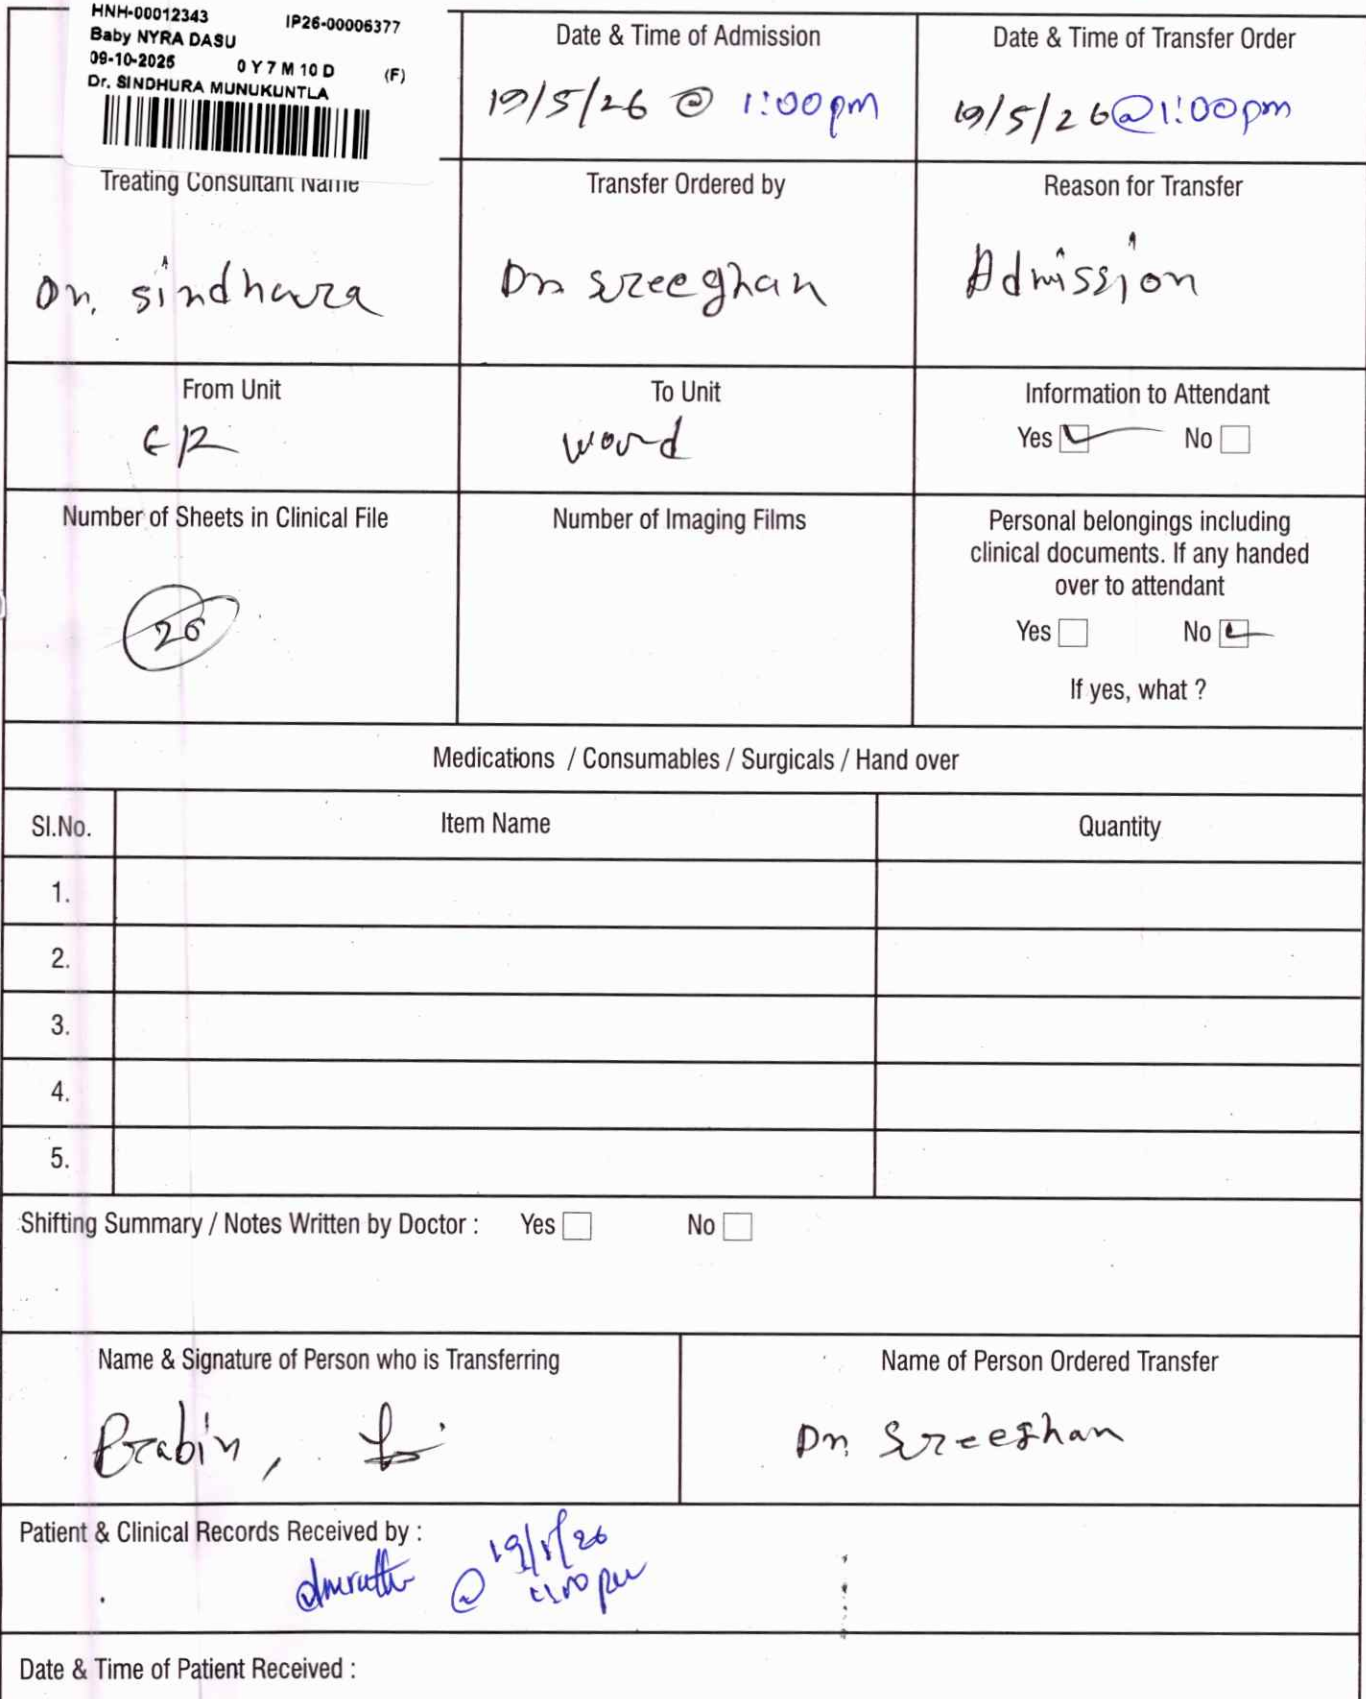 HNH-00012343 IP26-00006377
Baby NYRA DASU
09-10-2025 0 Y 7 M 10 D (F)
Dr. SINDHURA MUNUKUNTLA
Date & Time of Admission
19/5/26 @ 1:00pm
Date & Time of Transfer Order
19/5/26 @ 1:00pm
Treating Consultant Name
Dr. Sindhura
Transfer Ordered by
Dr. Sreeghan
Reason for Transfer
Admission
From Unit
ER
To Unit
ward
Information to Attendant
Yes No
Number of Sheets in Clinical File
26
Number of Imaging Films
Personal belongings including
clinical documents. If any handed
over to attendant
Yes No
If yes, what ?
Medications / Consumables / Surgicals / Hand over
Sl.No. Item Name Quantity
1.
2.
3.
4.
5.
Shifting Summary / Notes Written by Doctor : Yes No
Name & Signature of Person who is Transferring
Prabin,
Name of Person Ordered Transfer
Dr. Sreeghan
Patient & Clinical Records Received by :
@ 19/5/26
Date & Time of Patient Received :